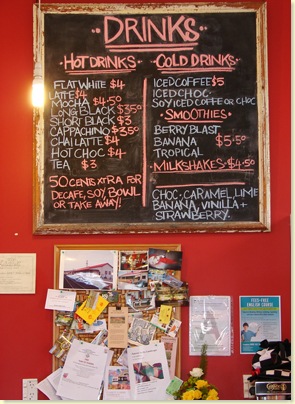 DRINKS
HOT DRINKS
FLAT WHITE $4
LATTE $4
MOCHA $4.50
LONG BLACK $3.50
SHORT BLACK $3
CAPPACHINO $3.50
CHAI LATTE $4
HOT CHOC $4
TEA $3
50 CENTS XTRA FOR
DECAFE, SOY, BOWL
OR TAKE AWAY!
COLD DRINKS
ICED COFFEE $5
ICED CHOC
SOY ICED COFFE OR CHOC
SMOOTHIES
BERRY BLAST
BANANA $5.50
TROPICAL
MILKSHAKES $4.50
CHOC. CARAMEL, LIME
BANANA, VANILLA +
STRAWBERRY.
FEE-FREE
ENGLISH COURSE